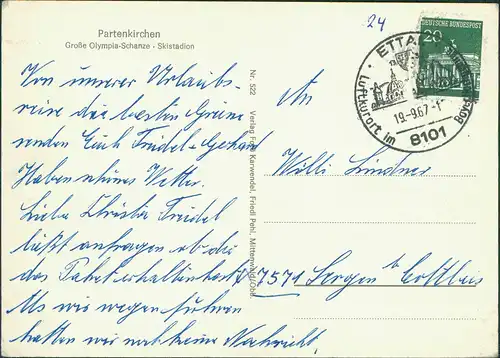 Partenkirchen
Große Olympia-Schanze · Skistadion
24
DEUTSCHE BUNDESPOST
20
ETTAL
Luftkurort im
19.-9.67.-1
8101
Nr. 522 Verlag Karwendel, Friedl Pehl, Mittenwald/Obb.
Von unserer Urlaubs-
reise die besten Grüße
senden Euch Friedel - Gerhard
Haben schönes Wetter.
Liebe Christa Friedel
läßt anfragen ob du
das Paket erhalten hast?
Als wir wegen fuhren
hatten wir noch keine Nachricht.
An
Willi Lindner
7571 Sergen b Cottbus